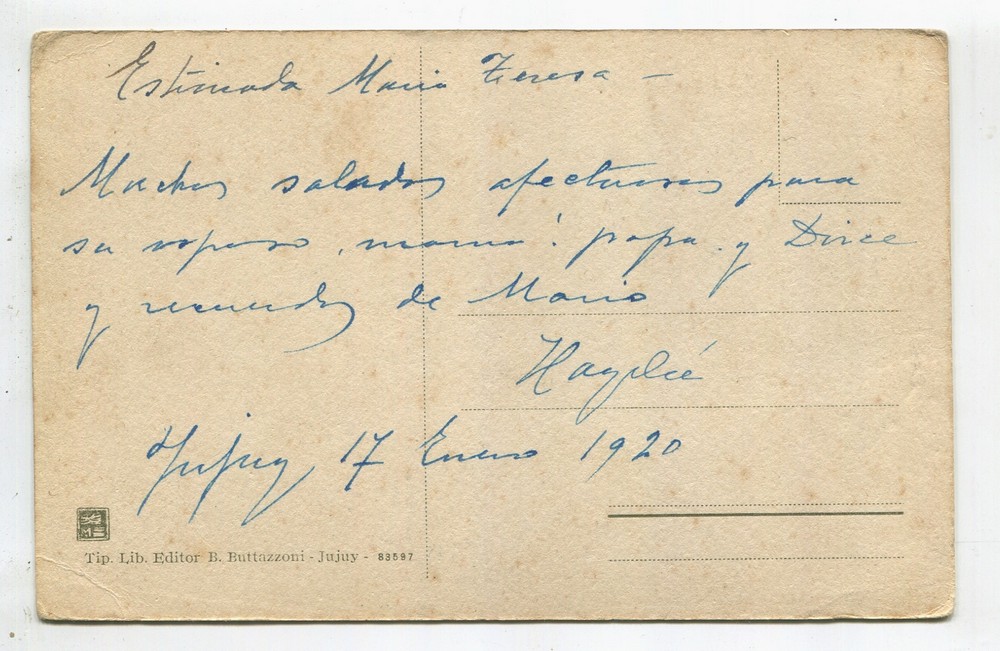 Estimada Maria Teresa –
Muchos saludos afectuosos para
su esposo, mamá, papa y Dirce
y recuerdos de Mario
Haydée
Jujuy 17 Enero 1920
Tip. Lib. Editor B. Buttazzoni - Jujuy - 83597